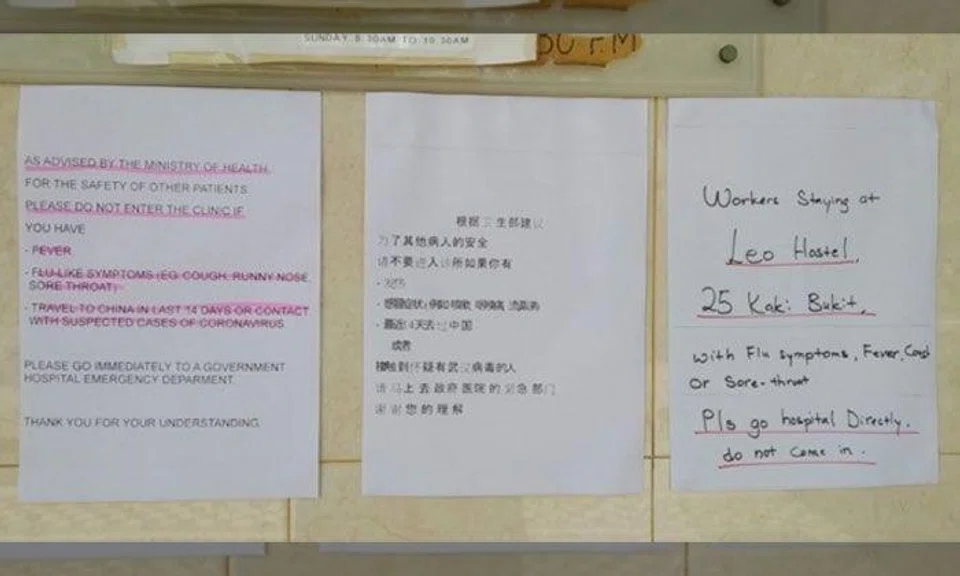 SUNDAY 8.30AM TO 10.30AM
30 PM
AS ADVISED BY THE MINISTRY OF HEALTH
FOR THE SAFETY OF OTHER PATIENTS
PLEASE DO NOT ENTER THE CLINIC IF
YOU HAVE
- FEVER
- FLU-LIKE SYMPTOMS (EG. COUGH, RUNNY NOSE,
SORE THROAT)
- TRAVEL TO CHINA IN LAST 14 DAYS OR CONTACT
WITH SUSPECTED CASES OF CORONAVIRUS
PLEASE GO IMMEDIATELY TO A GOVERNMENT
HOSPITAL EMERGENCY DEPARMENT.
THANK YOU FOR YOUR UNDERSTANDING.
根据卫生部建议
为了其他病人的安全
请不要进入诊所如果你有
- 发烧
- 感冒症状：例如咳嗽
- 最近14天去过中国
或者
接触到怀疑有武汉病毒的人
请马上去政府医院的紧急部门
谢谢您的理解
Workers Staying at
Leo Hostel,
25 Kaki Bukit,
with Flu symptoms, Fever,
Or Sore-throat
Pls go hospital Directly.
do not come in.